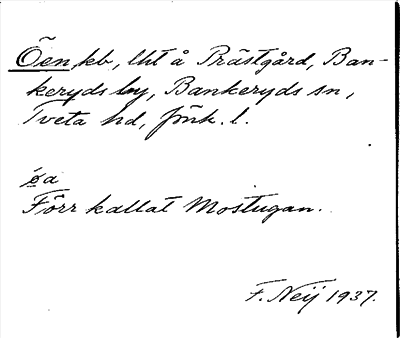 Öen, kb, lht å Prästgård, Ban-
keryds by, Bankeryds sn,
Tveta hd, Jönk. l.
øa
Förr kallat Mostugan.
F. Neij 1937.